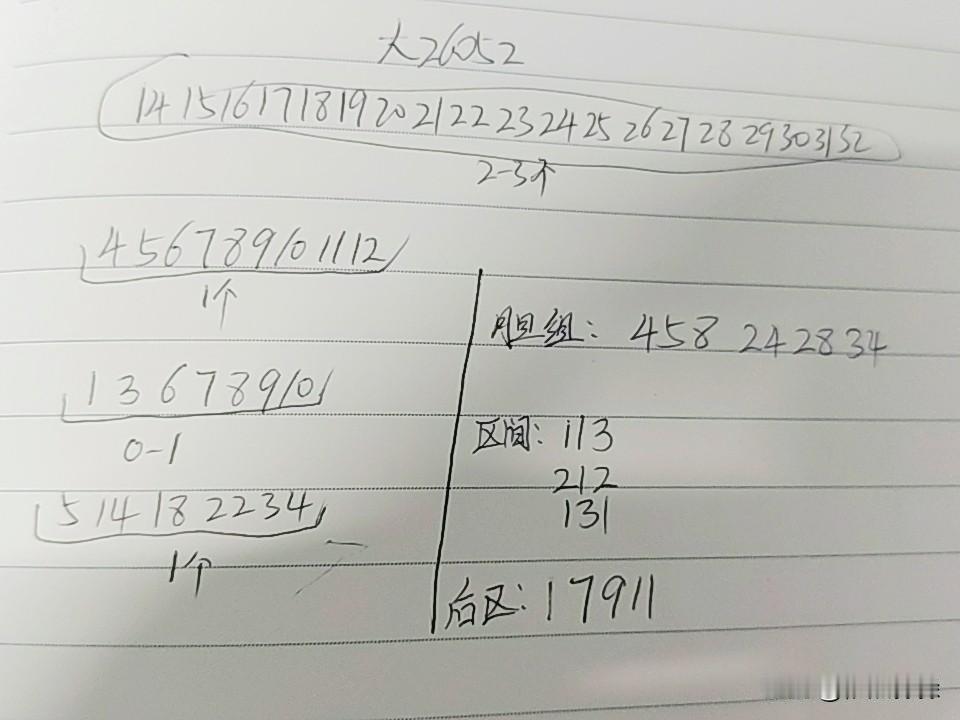 大26052
14 15 16 17 18 19 20 21 22 23 24 25 26 27 28 29 30 31 32
2-3个
4 5 6 7 8 9 10 11 12
1个
1 3 6 7 8 9 10
0-1
5 14 18 22 34
1个
胆组: 4 5 8 24 28 34
区间: 113
212
131
后区: 1 7 9 11